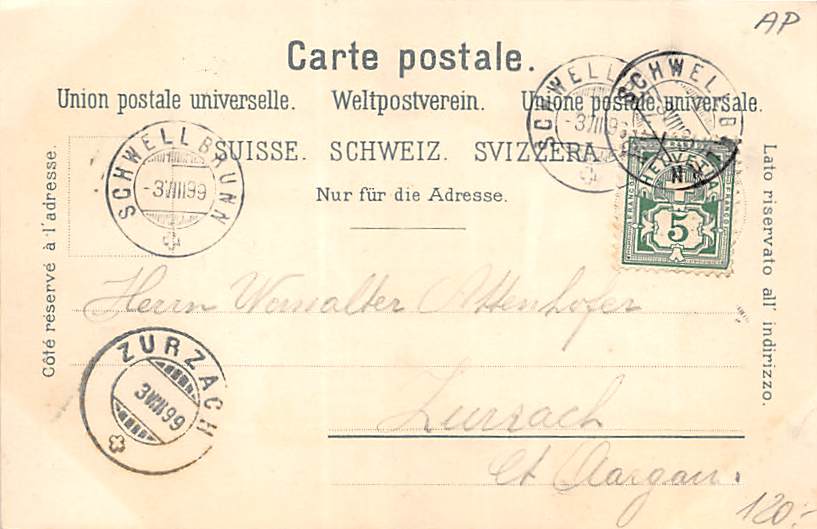 AP
Carte postale.
Union postale universelle. Weltpostverein. Unione postale universale.
SUISSE. SCHWEIZ. SVIZZERA.
Nur für die Adresse.
Côté réservé à l'adresse.
Lato riservato all' indirizzo.
SCHWELLBRUNN
-3VIII99
SCHWELL
-3VIII99
SCHWELLB
HELVETIA
FRANCO
5
Herrn Attenhofer
ZURZACH
3VIII99
Zurzach
Ct Aargau.
120.-